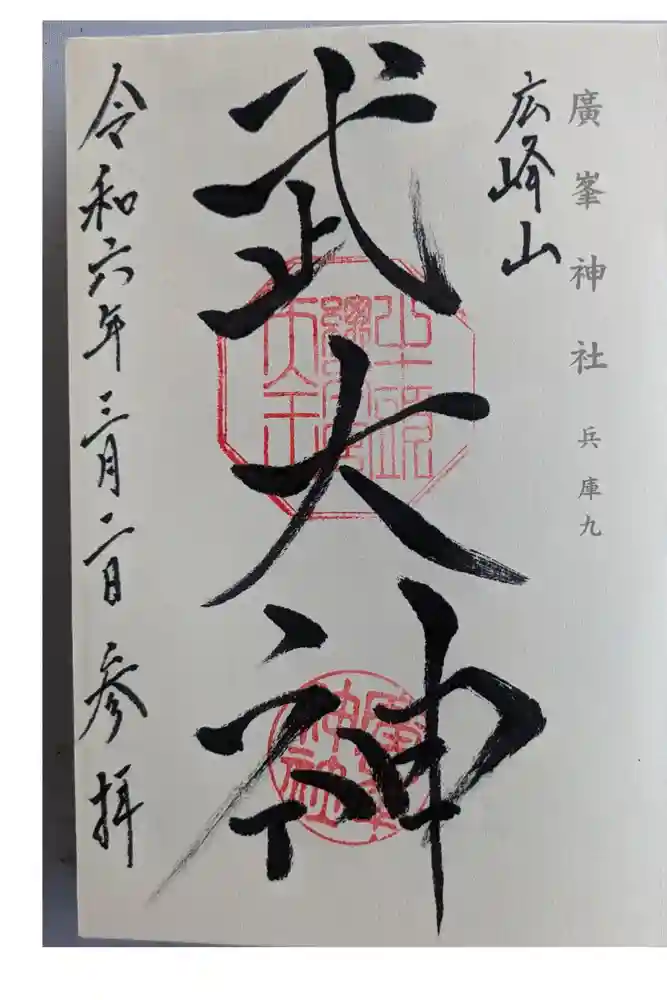 廣峯神社 兵庫九
広峰山
武大神
廣峯神社
令和六年三月二日 参拝